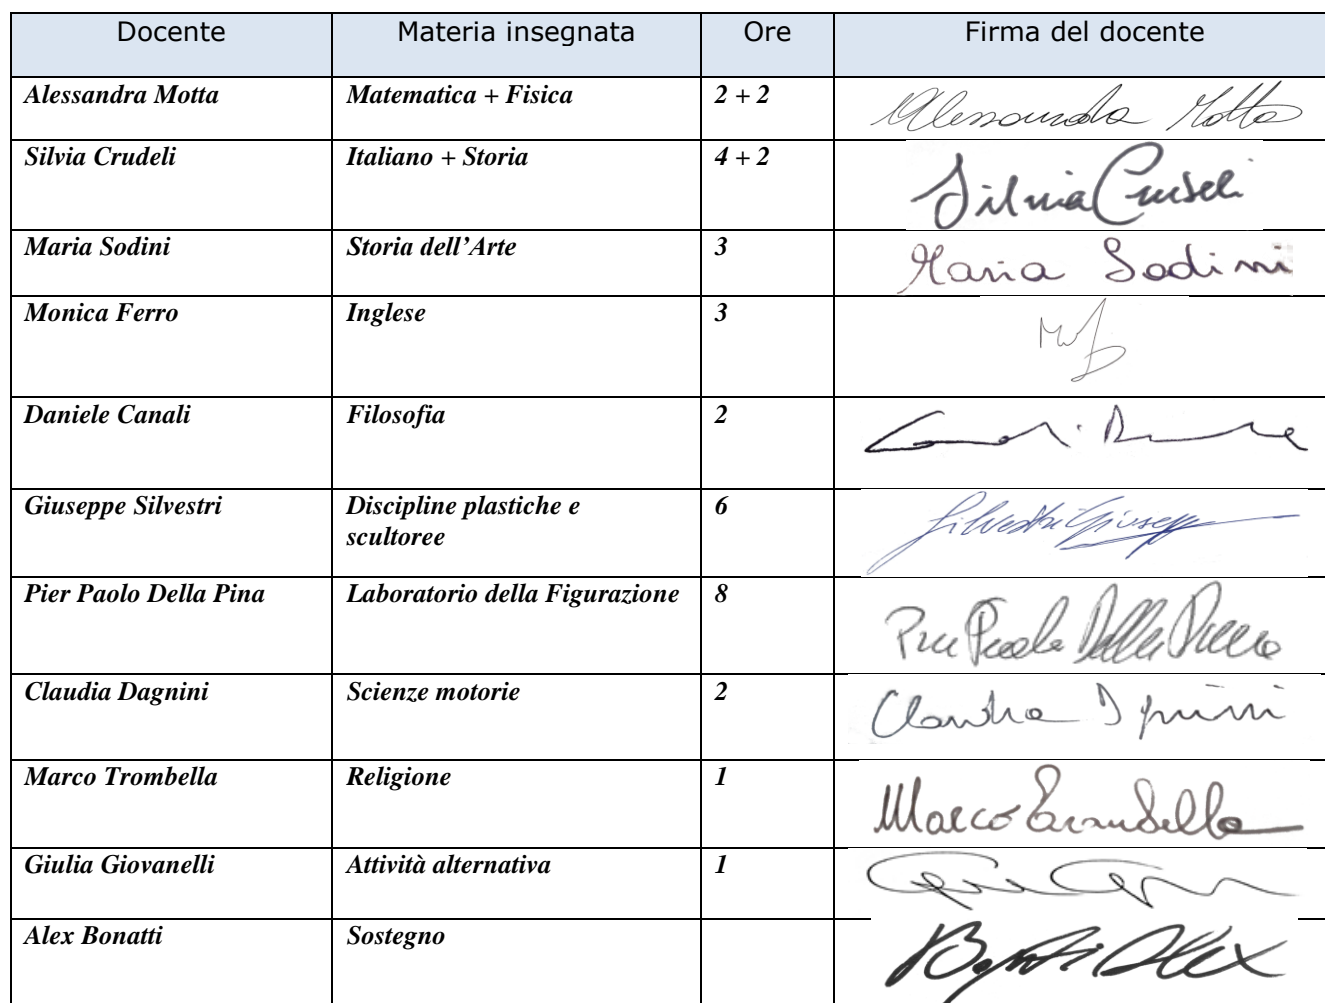 Docente Materia insegnata Ore Firma del docente
Alessandra Motta Matematica + Fisica 2 + 2 Alessandra Motta
Silvia Crudeli Italiano + Storia 4 + 2 Silvia Crudeli
Maria Sodini Storia dell'Arte 3 Maria Sodini
Monica Ferro Inglese 3
Daniele Canali Filosofia 2
Giuseppe Silvestri Discipline plastiche e 6 Silvestri Giuseppe
scultoree
Pier Paolo Della Pina Laboratorio della Figurazione 8 Pier Paolo Della Pina
Claudia Dagnini Scienze motorie 2 Claudia Dagnini
Marco Trombella Religione 1 Marco Trombella
Giulia Giovanelli Attività alternativa 1
Alex Bonatti Sostegno Bonatti Alex